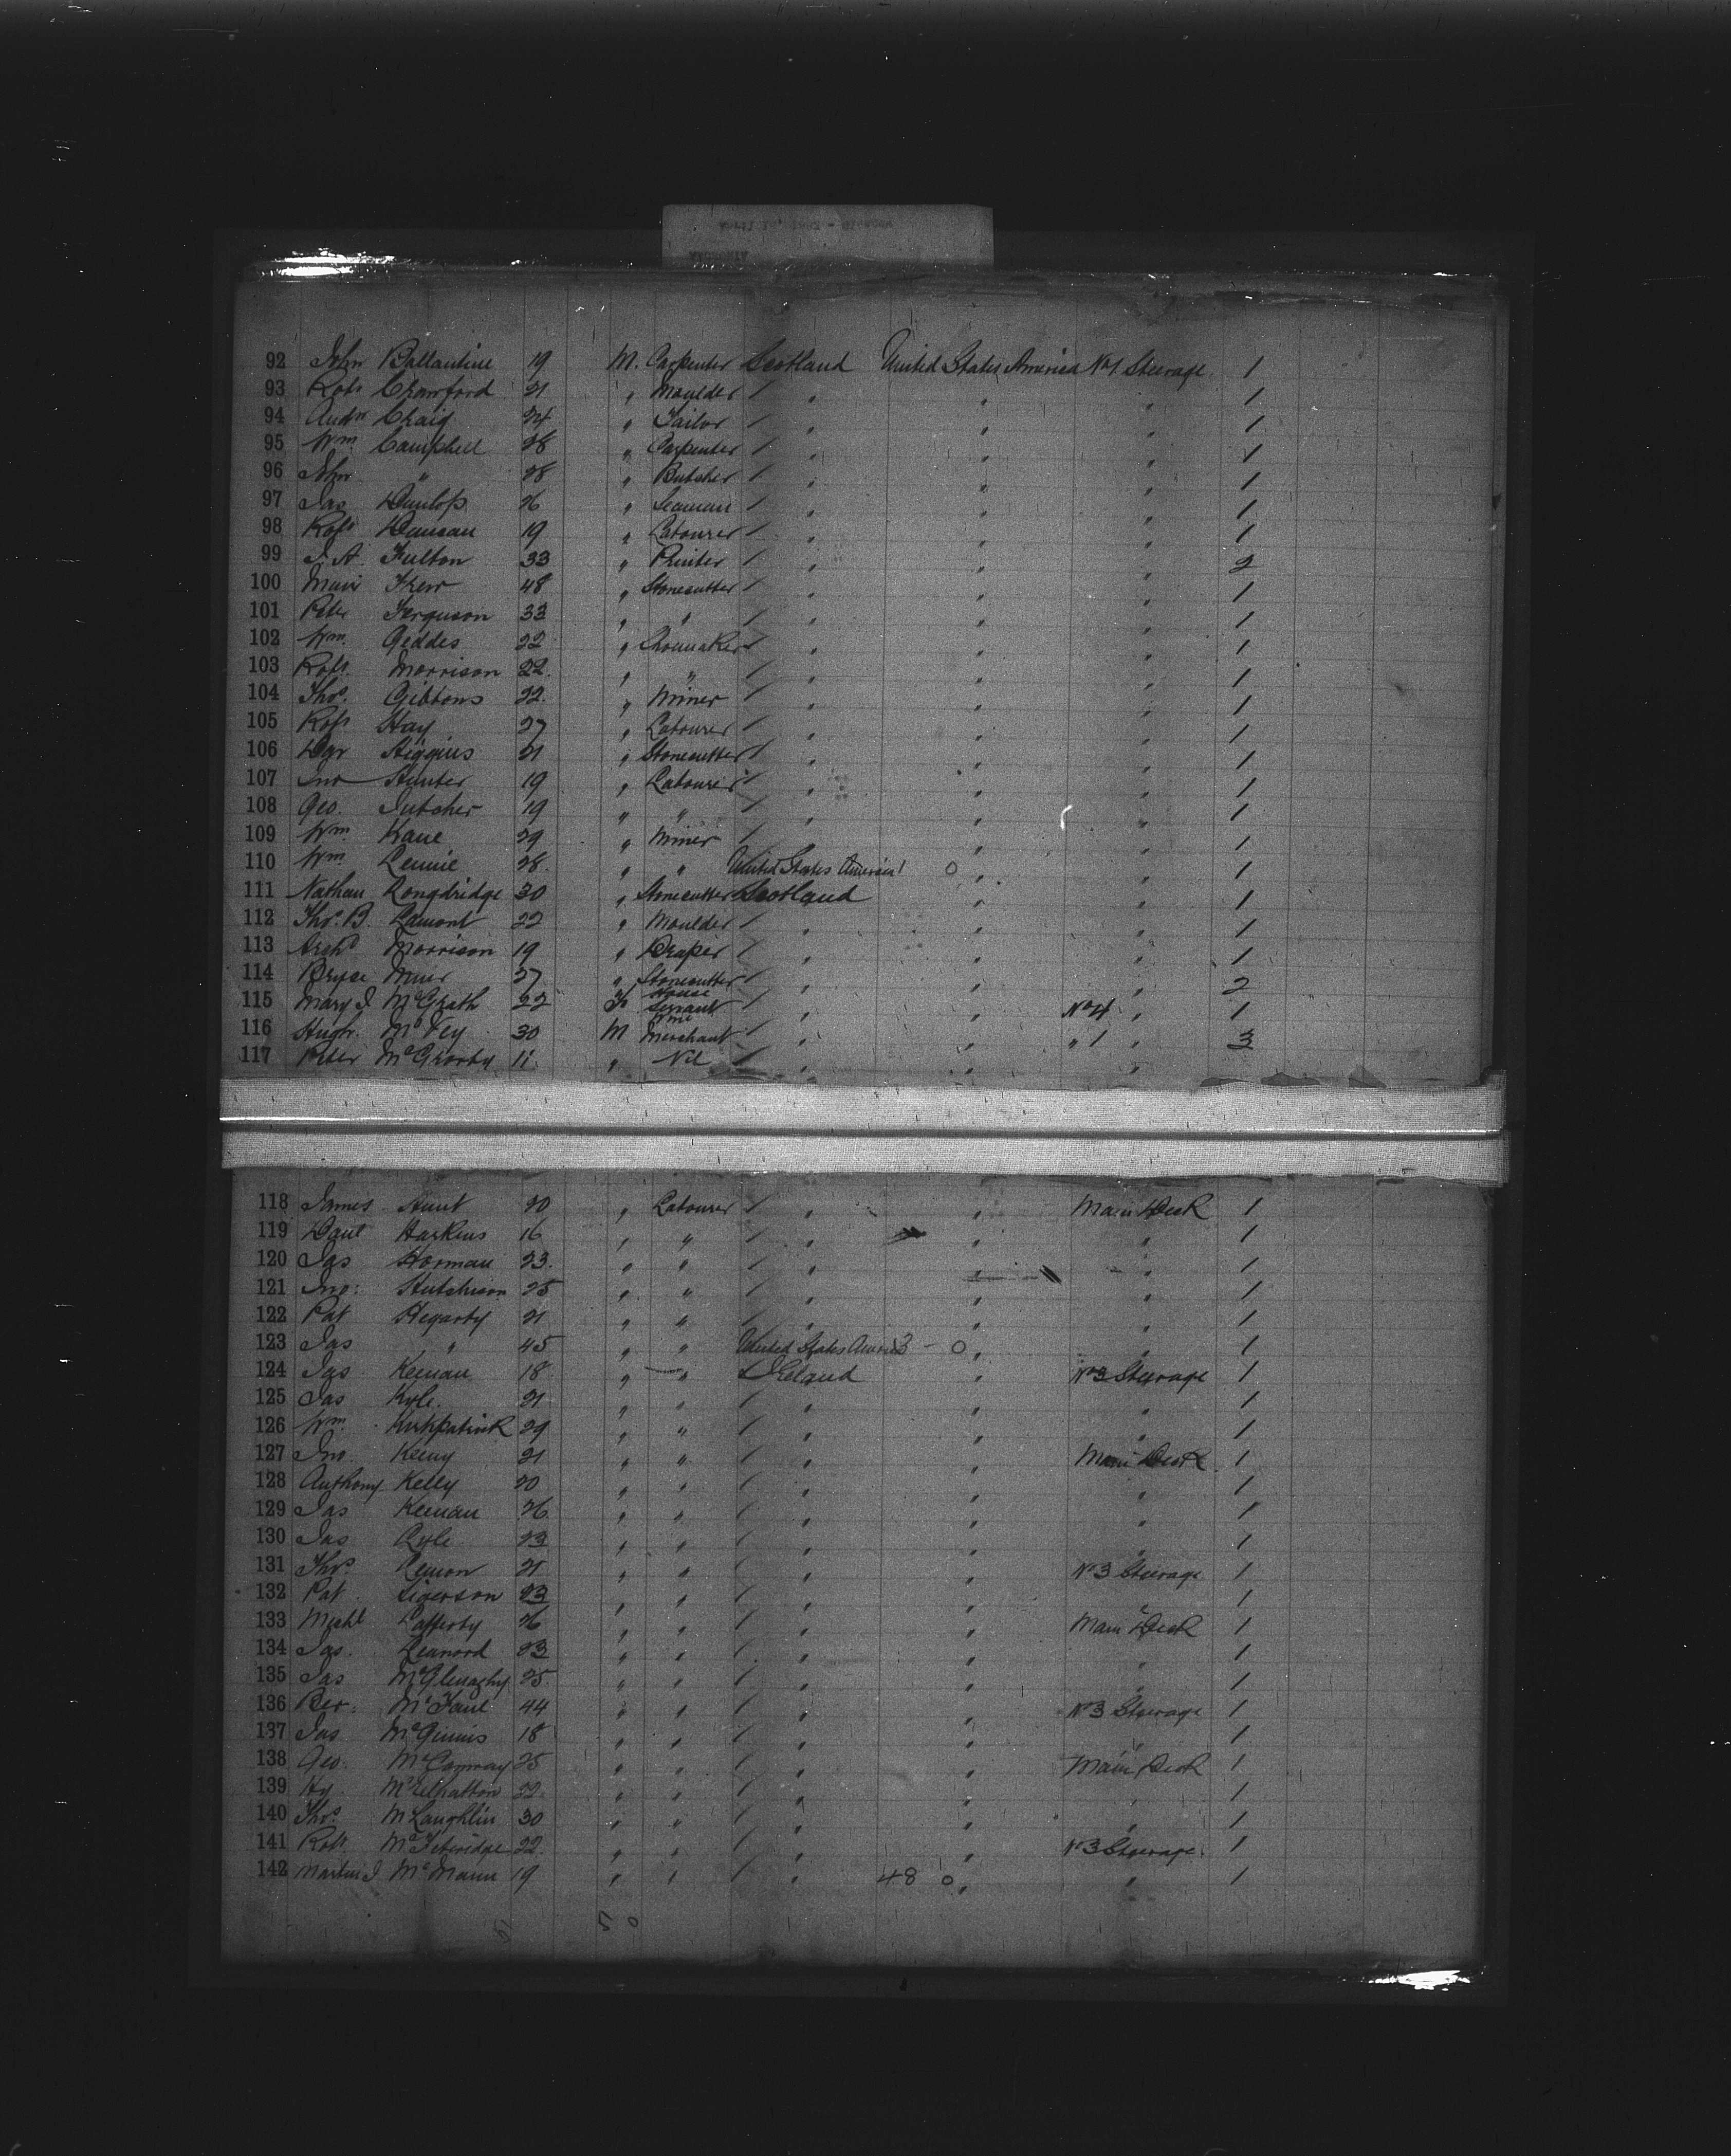 92 John Ballantine 19 M. Carpenter Scotland United States America No 1 Steerage 1
93 Robt Crawford 21 " Moulder / " " " 1
94 Andw Craig 24 " Tailor / " " " 1
95 Wm Campbell 28 " Carpenter / " " " 1
96 John " 28 " Butcher / " " " 1
97 Jas Dunlop 26 " Seaman / " " " 1
98 Robt Duncan 19 " Labourer / " " " 1
99 J. A. Fulton 33 " Printer / " " " 2
100 Muir 48 " Stonecutter / " " " 1
101 Peter Ferguson 33 " " / " " " 1
102 Wm. Geddes 22 " Shoemaker / " " " 1
103 Robt. Morrison 22. " " / " " " 1
104 Thos. Gibbons 22. " Miner / " " " 1
105 Robt Hay 27 " Labourer / " " " 1
106 Higgins 21 " Stonecutter / " " " 1
107 Jno Hunter 19 " Labourer / " " " 1
108 Geo. 19 " " / " " " 1
109 Wm Kane 29 " Miner / " " " 1
110 Wm Rennie 28. " " United States America 1 0 " " 1
111 Nathan Longdridge 30 " Stonecutter Scotland " " 1
112 Thos. B. Lamont 22 " Moulder / " " " 1
113 Archd Morrison 19 " Draper / " " " 1
114 Bryce Muir 27 " Stonecutter / " " " 2
115 Mary J. McGrath 22 F House Servant / " " No 4 " 1
116 Hugh. McVey 30 M Wine Merchant / " " " 1 " 3
117 Peter 11. " Nil / " " "
118 James Hunt 20 " Labourer / " " Main Deck 1
119 Danl Harkins 16 " " / " " " 1
120 Jas Horman 23. " " / " " " 1
121 Jno: Hutchison 25 " " / " " " 1
122 Pat Hegarty 21 " " / " " " 1
123 Jas " 45 " " United States 3 - 0 " " 1
124 Jas Keenan 18 " " Ireland " No 3 Steerage 1
125 Jas Kyle. 21 " " / " " " 1
126 Wm. Kirkpatrick 29 " " / " " " 1
127 Jno. 21 " " / " " Main Deck 1
128 Anthony Kelly 20 " " / " " " 1
129 Jas Keenan 26 " " / " " " 1
130 Jas 23 " " / " " " 1
131 Thos. Lemon 21 " " / " " No 3 Steerage 1
132 Pat Sigerson 23 " " / " " " 1
133 Michl Lafferty 26 " " / " " Main Deck 1
134 Jas. Leanord 23 " " / " " " 1
135 Jas McGlenaghy 25. " " / " " " 1
136 Ber: McFaul 44 " " / " " No 3 Steerage 1
137 Jas McGinnis 18 " " / " " " 1
138 Geo. McConway 25 " " / " " Main Deck 1
139 Hy McElhatton 22. " " / " " " 1
140 Thos. McLaughlin 30 " " / " " " 1
141 Robt. McFetridge 22. " " / " " No 3 Steerage. 1
142 Martin J McMann 19 " " / " 48 0 " " 1
5 0